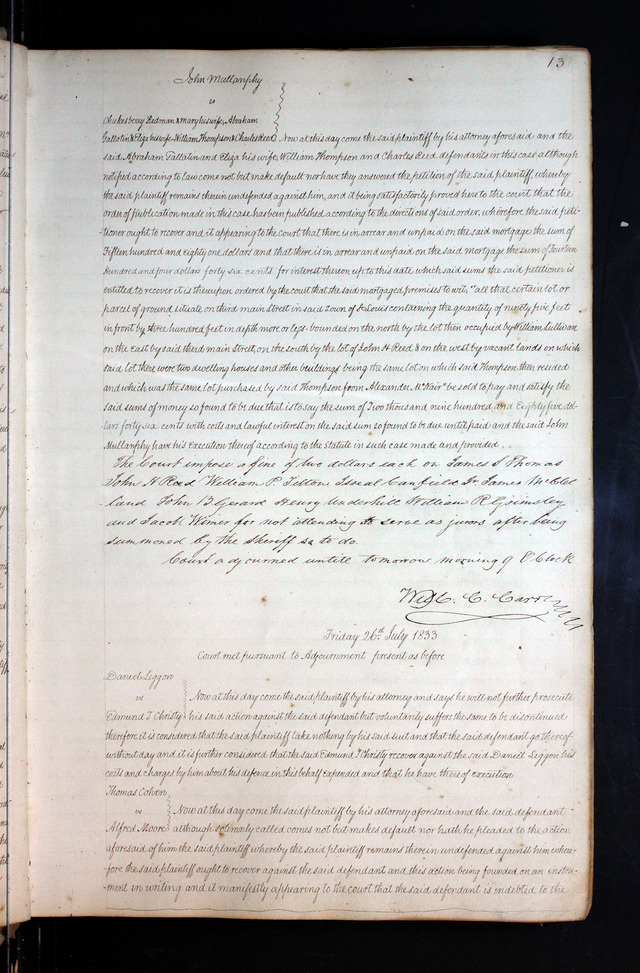 13
John Mullanphy
vs
Charles berry Redman & Mary his wife, Abraham
Gallatin & Eliza his wife William Thompson & Charles Reed
Now at this day come the said plaintiff by his attorney aforesaid and the
said Abraham Gallatin and Eliza his wife, William Thompson and Charles Reed defendants in this case although
notified according to law come not but make default nor have they answered the petition of the said plaintiff, whereby
the said plaintiff remains therein undefended against him, and it being satisfactorily proved here to the court that the
order of publication made in this case has been published according to the directions of said order, wherefore the said peti-
tioner ought to recover and it appearing to the court that there is in arrear and unpaid on the said mortgage the sum of
Fifteen hundred and eighty one dollars and that there is in arrear and unpaid on the said mortgage the sum of Fourteen
hundred and four dollars forty six cents for interest thereon up to this date which said sums the said petitioner is
entitled to recover it is thereupon ordered by the court that the said mortgaged premises to wit, "all that certain lot or
parcel of ground situate on third main Street in said Town of St Louis containing the quantity of ninety five feet
in front by three hundred feet in depth more or less - bounded on the north by the lot then occupied by William Sullivan
on the east by said third main Street, on the south by the lot of John H Reed & on the west by vacant lands on which
said lot there were two dwelling houses and other buildings being the same lot on which said Thompson then resided
and which was the same lot purchased by said Thompson from Alexander McNair" be sold to pay and satisfy the
said sums of money so found to be due that is to say the sum of Two thousand nine hundred and Eighty five dol-
lars forty six cents with costs and lawful interest on the said sum so found to be due until paid and the said John
Mullanphy have his Execution thereof according to the Statute in such case made and provided
The Court impose a fine of two dollars each on James S Thomas
John H Reed William P Tilton Isreal Canfield Jr James McClel
land John B Gerard Henry Underhill William R Grimsley
and Jacob Wimer for not attending to serve as jurors after being
summoned by the Sheriff so to do.
Court adjourned untill tomorrow morning 9 O'Clock
Will. C. Carr
Friday 26th July 1833
Court met pursuant to Adjournment present as before
Daniel Leggon
vs
Now at this day come the said plaintiff by his attorney and says he will not further prosecute
Edmund T Christy his said action against the said defendant but voluntarily suffers the same to be discontinued
therefore it is considered that the said plaintiff take nothing by his suit and that the said defendant go thereof
without day and it is further considered that the said Edmund T Christy recover against the said Daniel Leggon his
costs and charges by him about his defence in this behalf expended and that he have thereof execution
Thomas Cohen
vs
Now at this day come the said plaintiff by his attorney aforesaid and the said defendant
Alfred Moore although solemnly called comes not but makes default nor hath he pleaded to the action
aforesaid of him the said plaintiff whereby the said plaintiff remains therein undefended against him where-
fore the said plaintiff ought to recover against the said defendant and this action being founded on an instru-
ment in writing and it manifestly appearing to the court that the said defendant is indebted to the